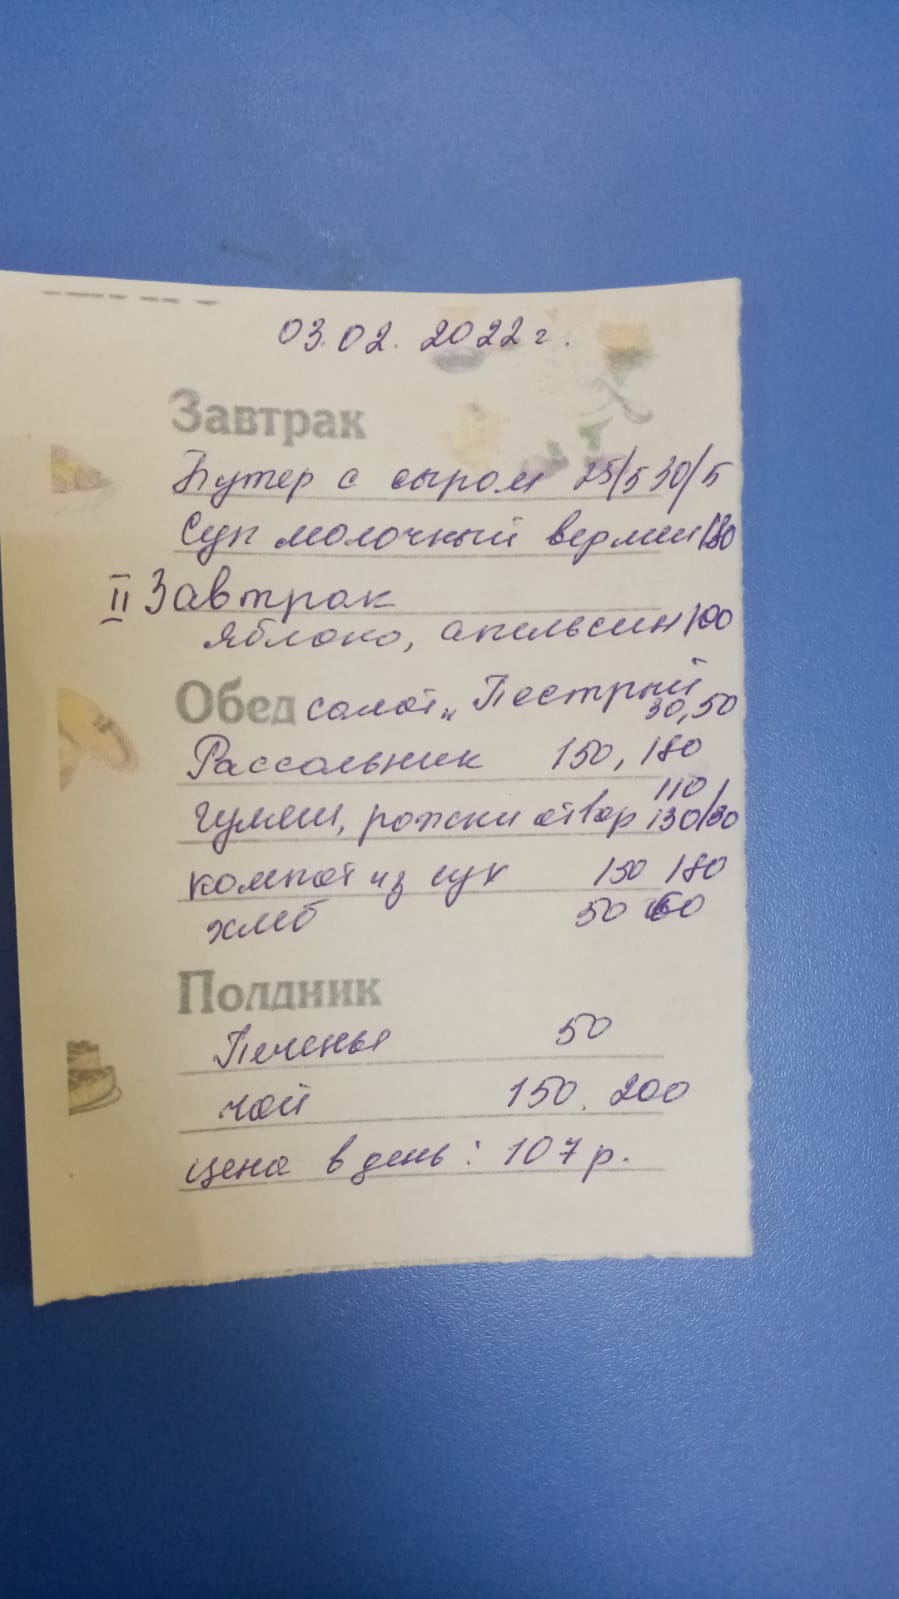 03.02. 2022 г.
Завтрак
Бутер с сыром 25/5 30/5
Суп молочный вермиш 180
II Завтрак
яблоко, апельсин 100
Обед салат „Пестрый
30,50
Рассольник 150, 180
110/
гуляш, рожки отвар 130/30
компот из сух 150 180
хлеб 50 60
Полдник
Печенье 50
чай 150. 200
цена в день: 107 р.